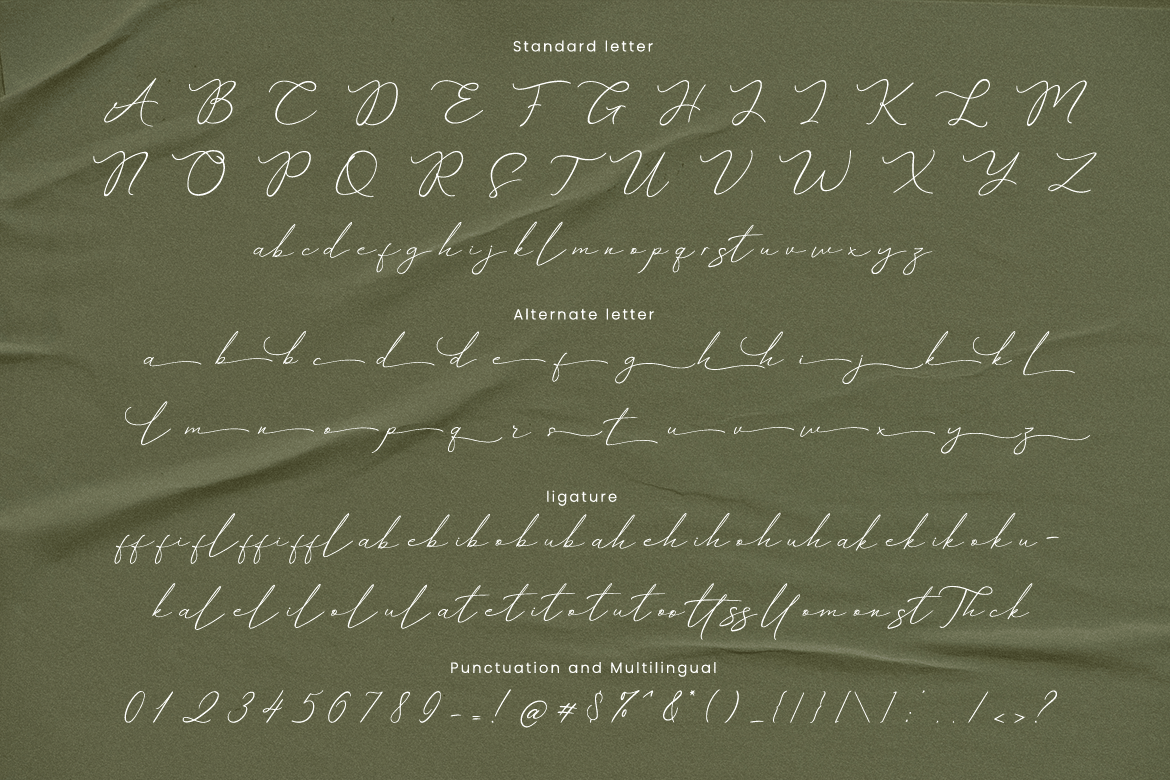 Standard letter
A B C D E F G H I J K L M
N O P Q R S T U V W X Y Z
a b c d e f g h i j k l m n o p q r s t u v w x y z
Alternate letter
a b b c d d e f g h h i j k k l
l m n o p q r s t u v w x y z
ligature
ff fi fl ffi ffl ab eb ib ob ub ah eh ih oh uh ak ek ik ok u-
k al el il ol ul at et it ot ut oo tt ss ll om on st Th ck
Punctuation and Multilingual
0 1 2 3 4 5 6 7 8 9 - = ! @ # $ % ^ & * ( ) _ { | } [ \ ] : . . / < > ?